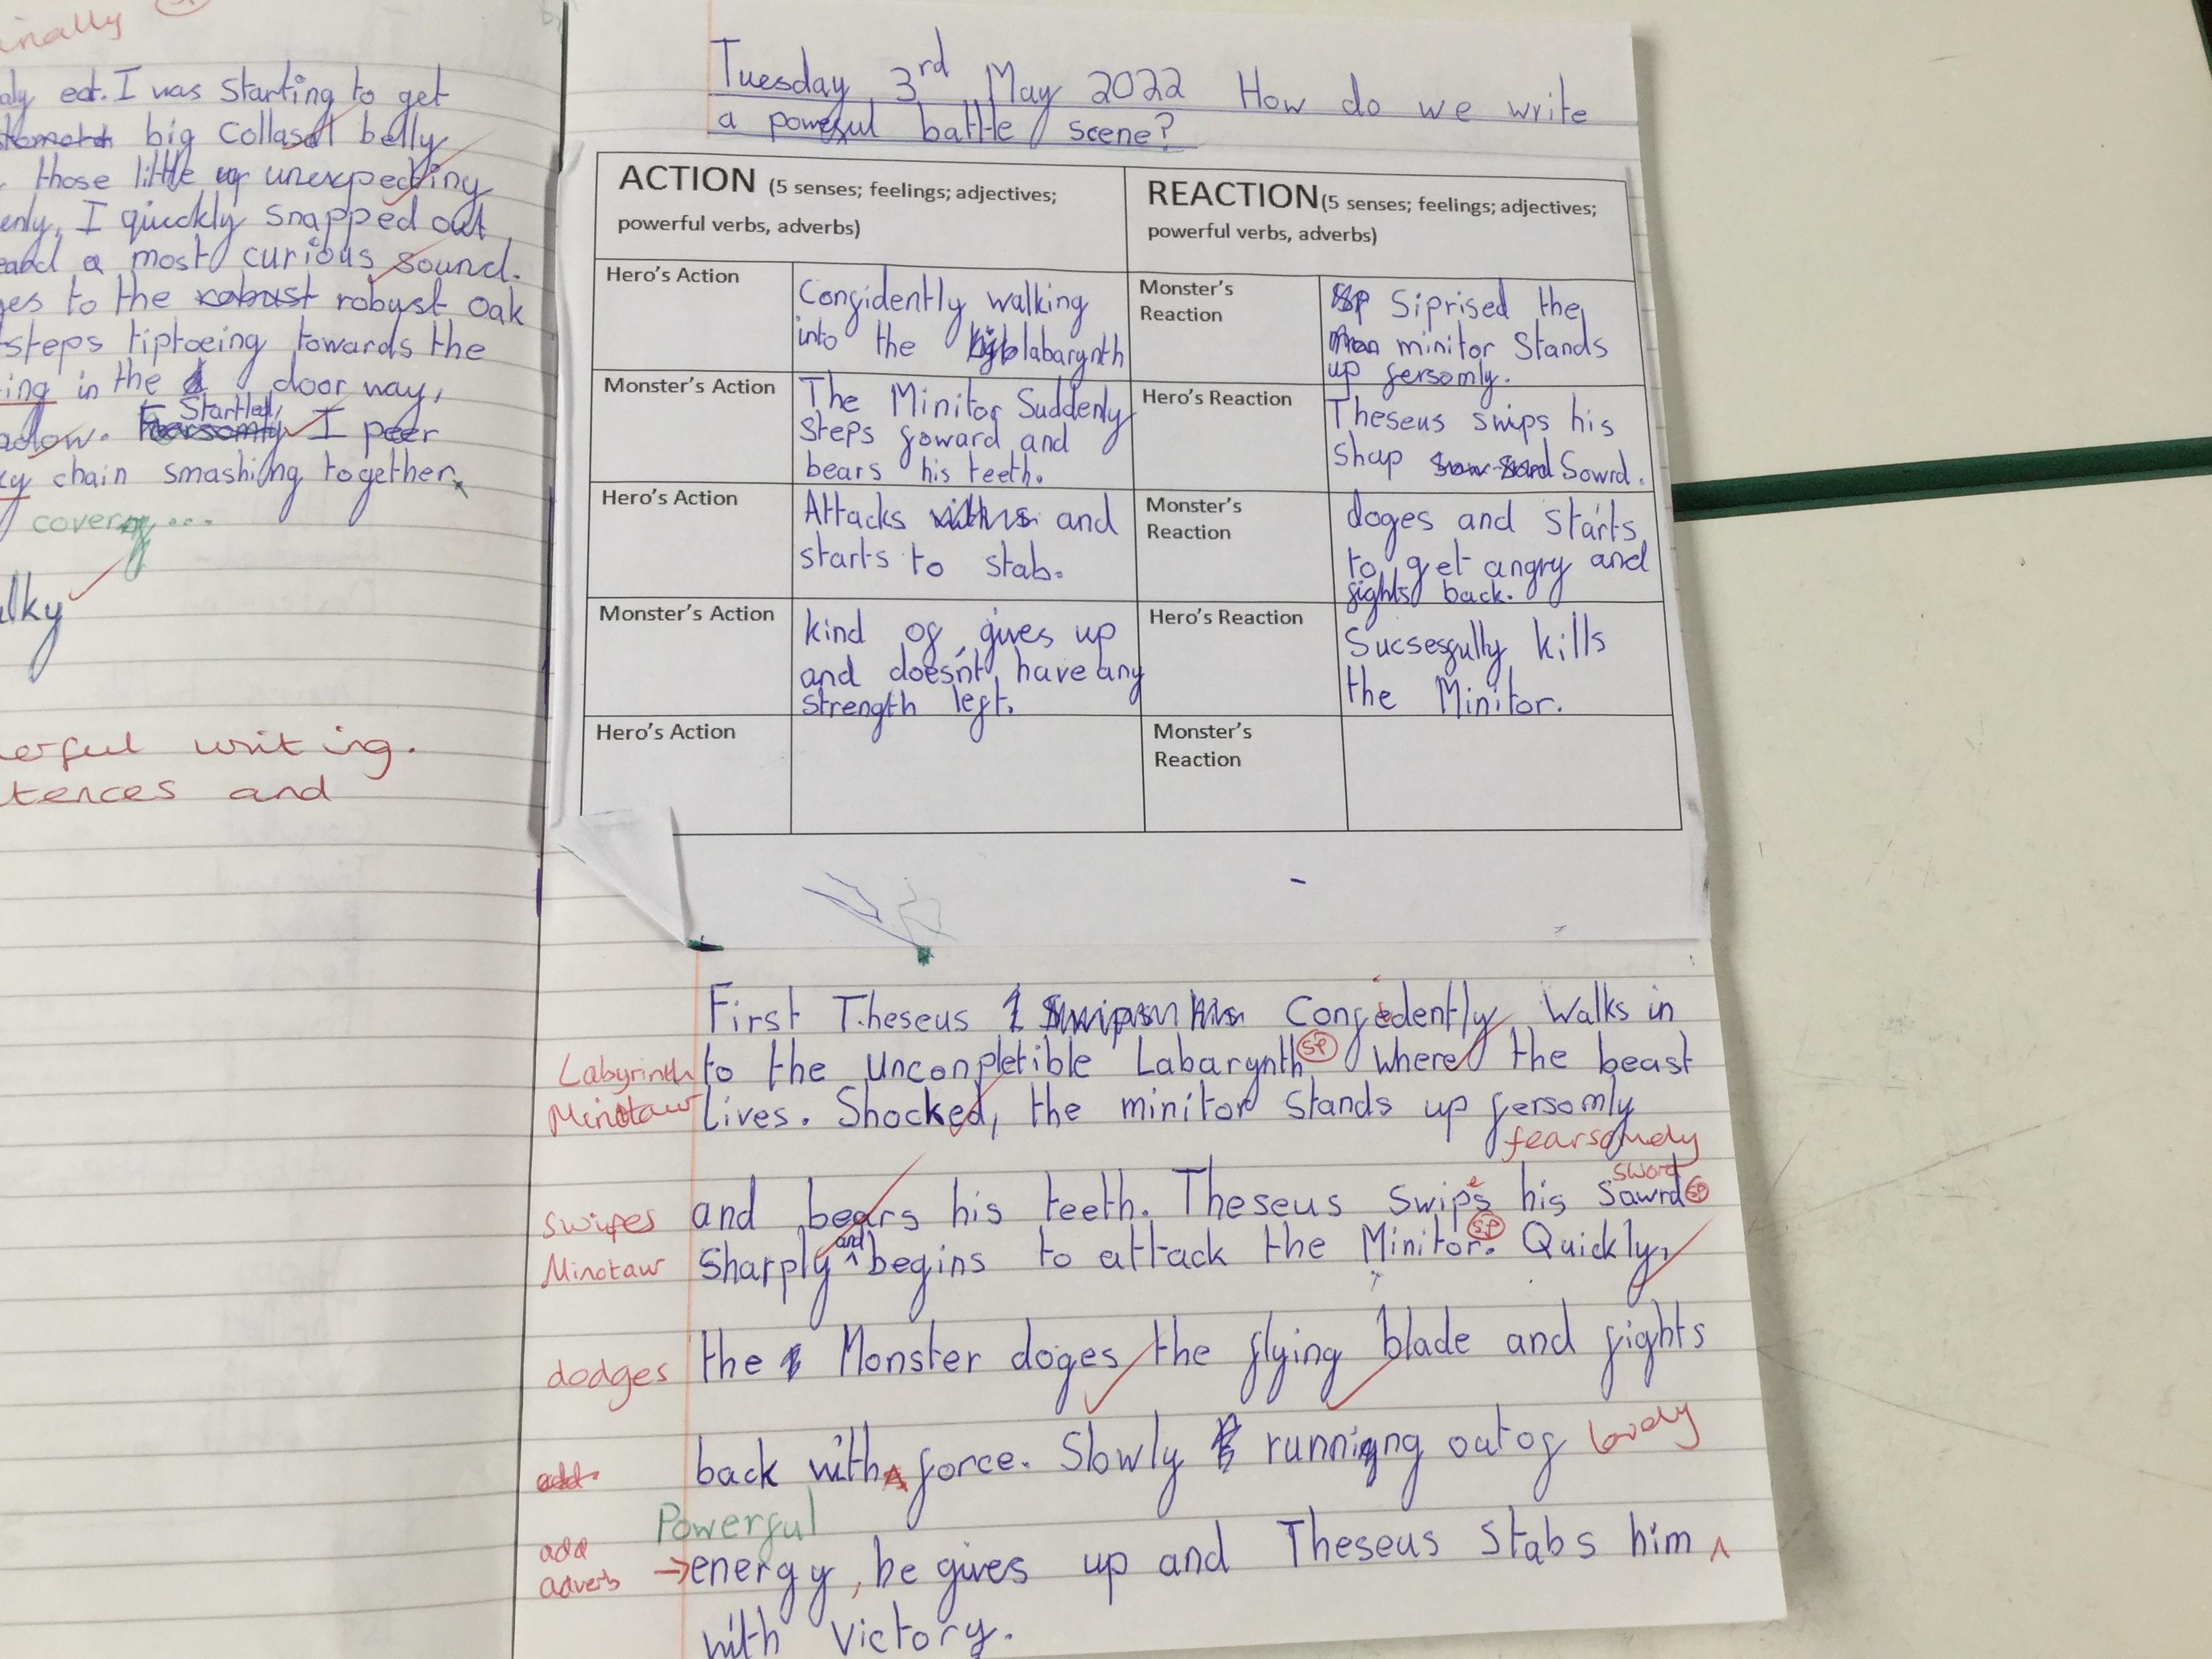 inally
aly eat. I was Starting to get
big Collasal belly
those little unexpecting
enly, I quickly snapped out
eand a most curious sound.
ges to the robust robyst oak
steps tiptoeing towards the
ing in the door way,
Startled,
adow. Fearsomly I peer
ky chain smashing together
covery...
alky
erful writing.
tences and
Tuesday 3rd May 2022 How do we write
a powerful battle scene?
ACTION (5 senses; feelings; adjectives;
powerful verbs, adverbs)
REACTION (5 senses; feelings; adjectives;
powerful verbs, adverbs)
Hero's Action
Confidently walking
into the labarynth
Monster's
Reaction
Siprised the
minitor Stands
up fersomly.
Monster's Action
The Minitor Suddenly
steps foward and
bears his teeth.
Hero's Reaction
Theseus swips his
Shap Sowrd.
Hero's Action
Attacks and
starts to stab.
Monster's
Reaction
doges and starts
to get angry and
fights back.
Monster's Action
kind of gives up
and doesn't have any
strength left.
Hero's Reaction
Sucsesfully kills
the Minitor.
Hero's Action
Monster's
Reaction
First Theseus Confedently Walks in
Labyrinth to the unconpletible Labarynth sp where the beast
Minotaur lives. Shocked, the minitor stands up fersomly
fearsomely
sword
swipes and bears his teeth. Theseus swipes his Sawrd sp
and
Minotaur Sharply begins to attack the Minitor. sp Quickly,
dodges the Monster doges the flying blade and fights
add back with force. Slowly running out of lovely
Powerful
add
adverb → energy, he gives up and Theseus Stabs him
with victory.